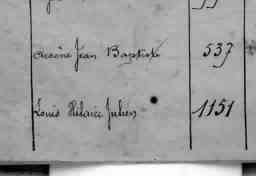 Arsène Jean Baptiste 537
Louis Hilaire Julien 1151